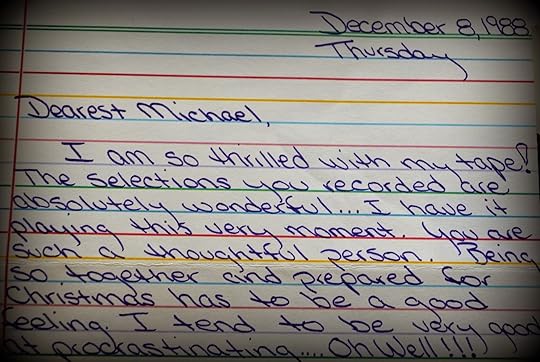 December 8, 1988
Thursday
Dearest Michael,
I am so thrilled with my tape!
The selections you recorded are
absolutely wonderful... I have it
playing this very moment. You are
such a thoughtful person. Being
so together and prepared for
Christmas has to be a good
feeling. I tend to be very good
at procrastinating.... Oh Well!!!!